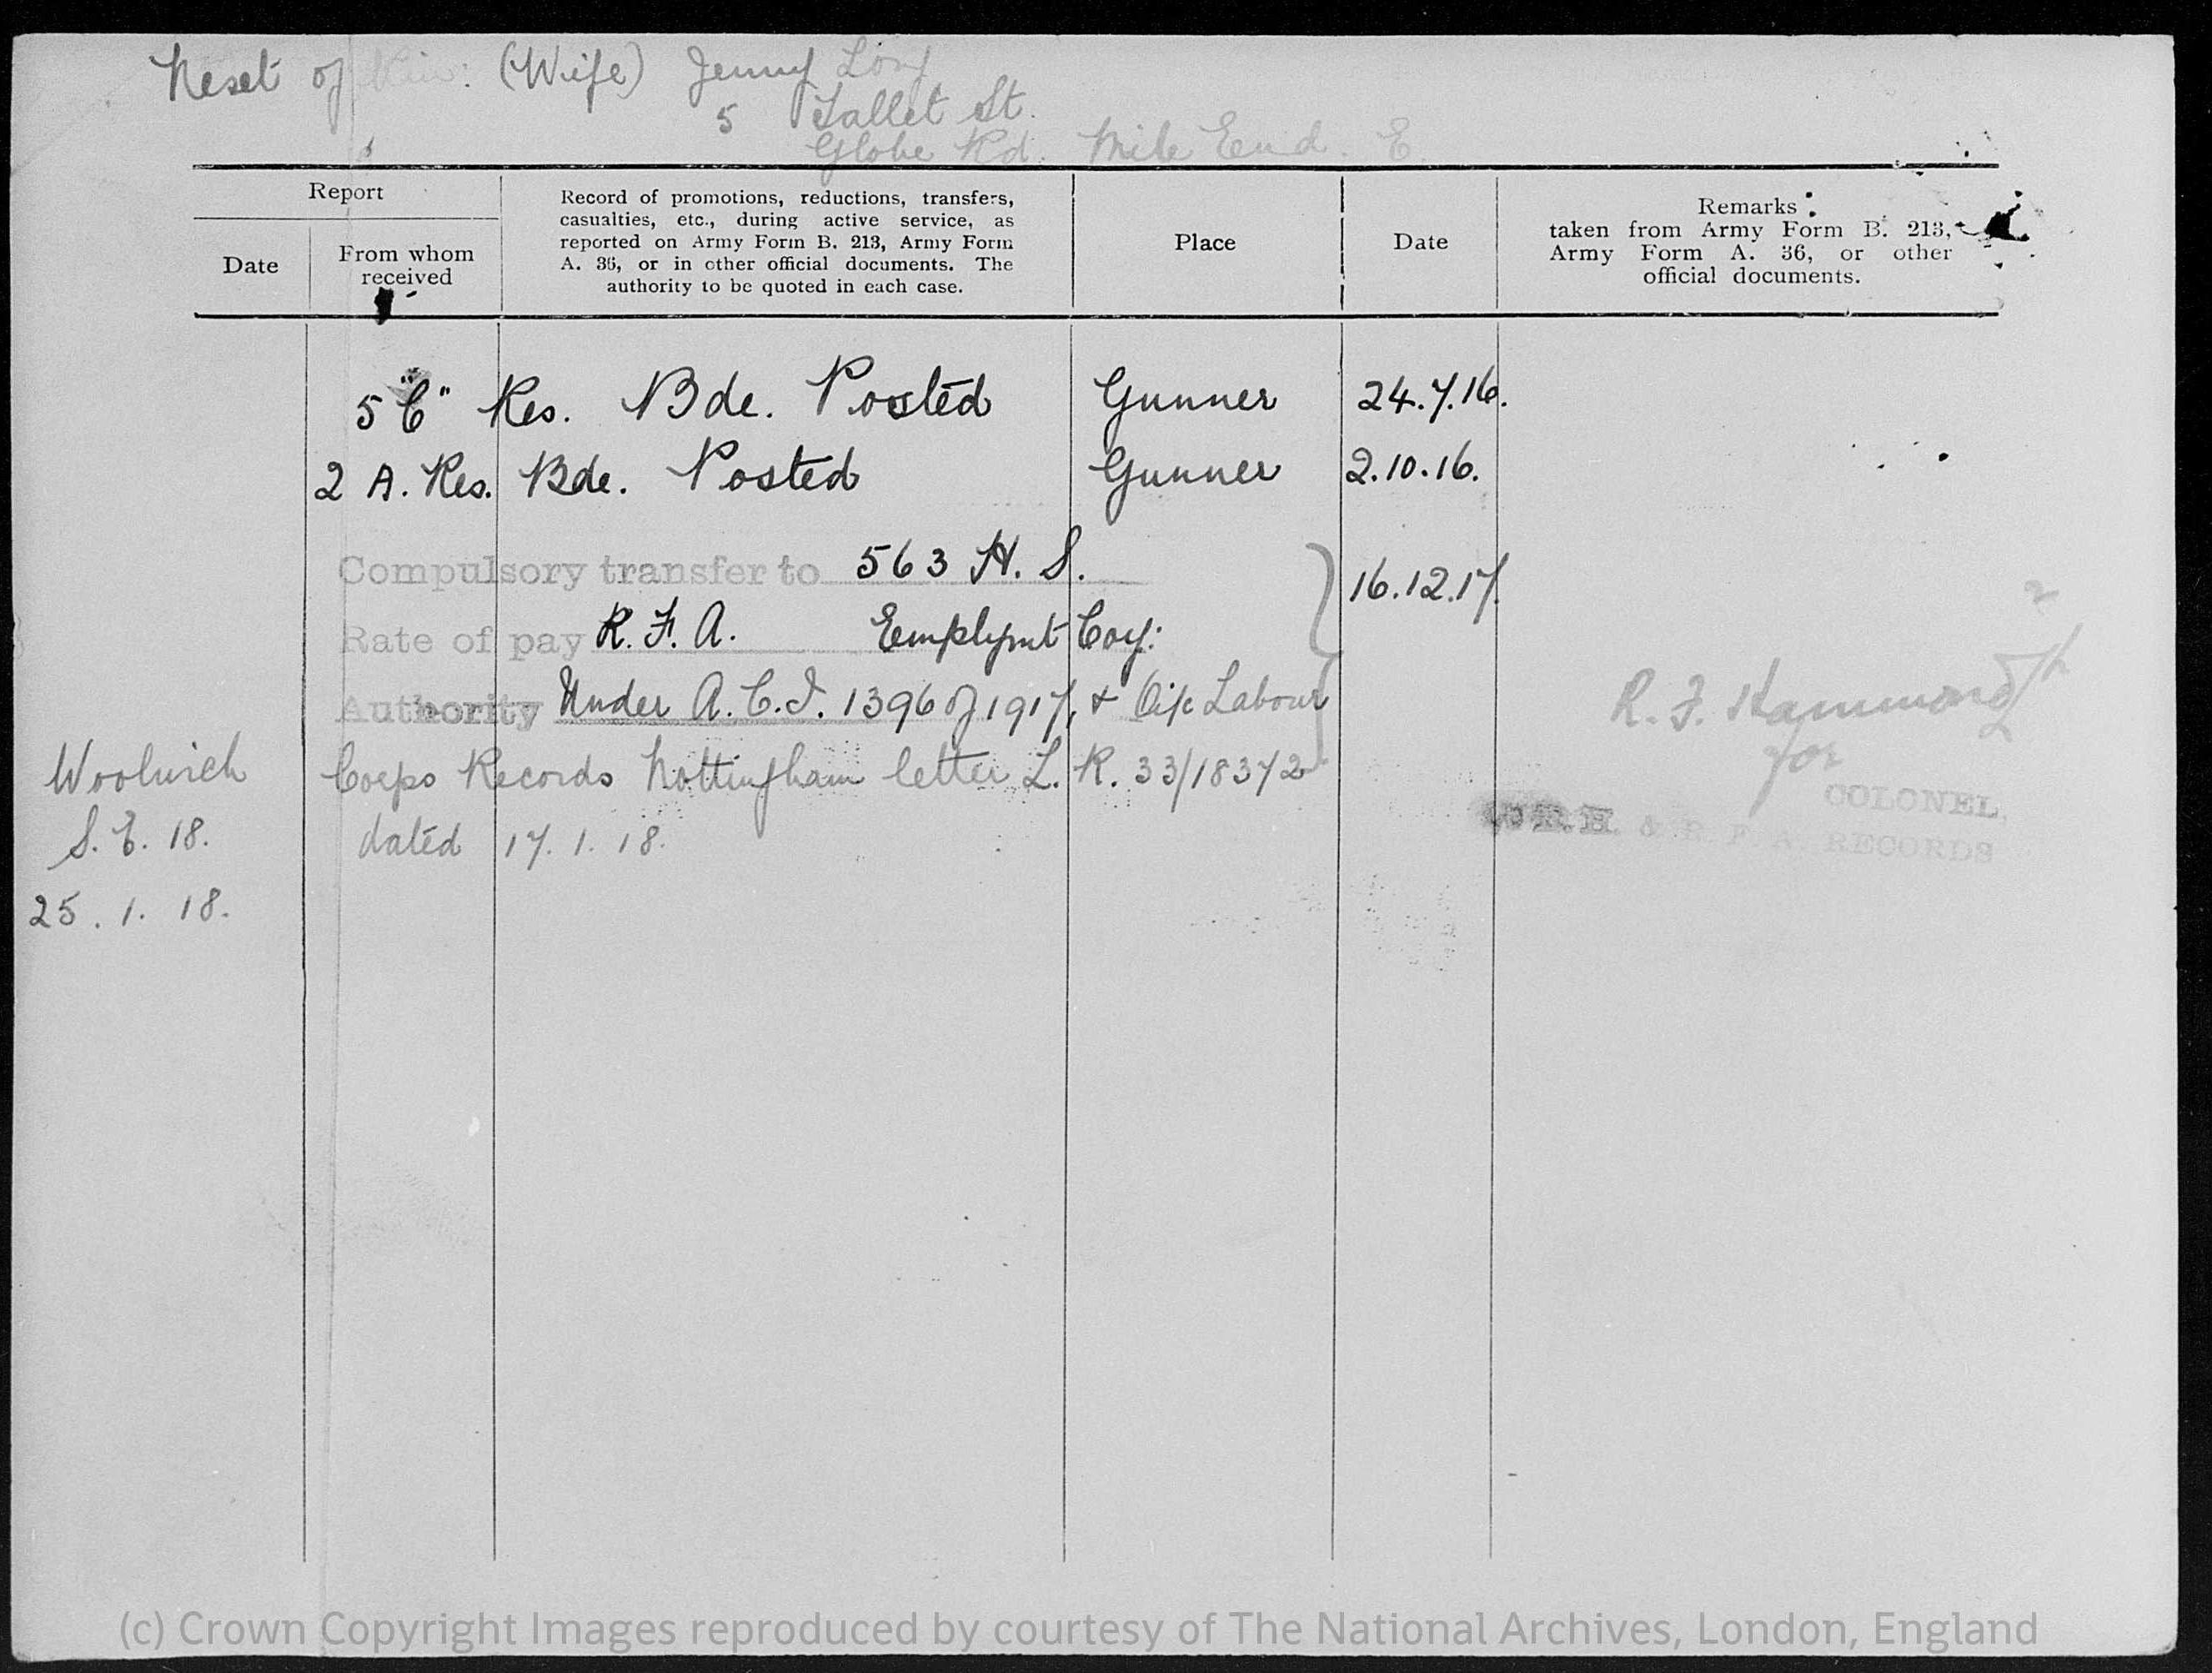 Next of Kin: (Wife) Jenny Long
5 Tallet St.
Globe Rd. Mile End. E.
Report
Date
From whom
received
Record of promotions, reductions, transfers,
casualties, etc., during active service, as
reported on Army Form B. 213, Army Form
A. 36, or in other official documents. The
authority to be quoted in each case.
Place
Date
Remarks
taken from Army Form B. 213,
Army Form A. 36, or other
official documents.
5 "C" Res. Bde. Posted Gunner 24.7.16.
2 A. Res. Bde. Posted Gunner 2.10.16.
Compulsory transfer to 563 H. S. 16.12.17.
Rate of pay R. F. A. Emplymt Coy:
Authority Under A. C. I. 1396 of 1917, & O i/c Labour
Corps Records Nottingham letter L. R. 33/18372
dated 17. 1. 18.
Woolwich
S. E. 18.
25. 1. 18.
R. F. Hammond
for
COLONEL,
R. H. & R. F. A. RECORDS
(c) Crown Copyright Images reproduced by courtesy of The National Archives, London, England